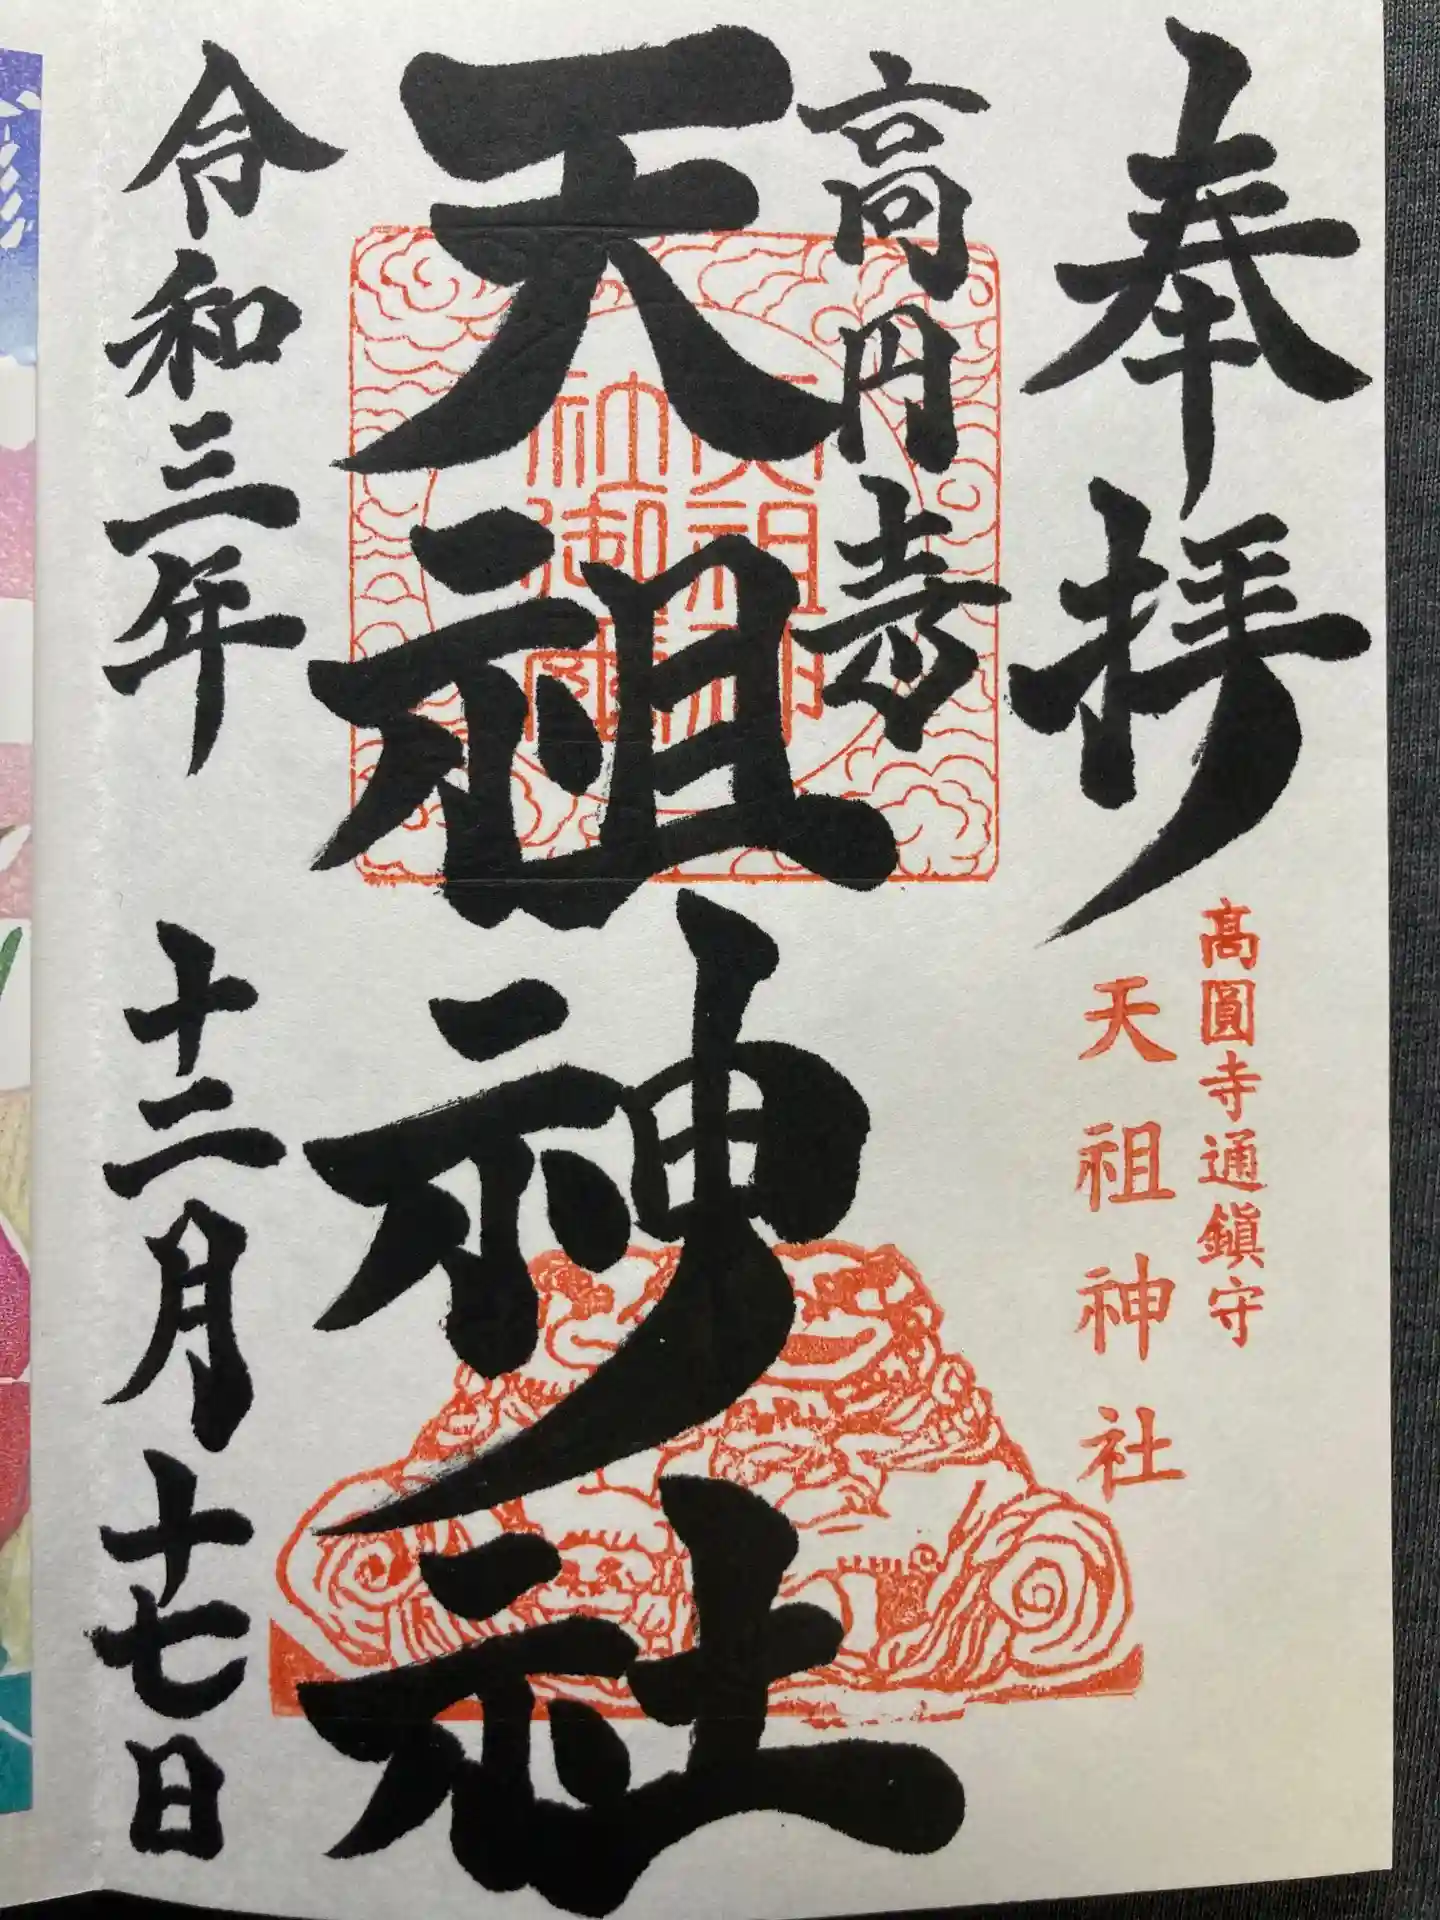 奉拝
髙圓寺通鎭守
天祖神社
高円寺
天祖神社
天祖神
社御璽
令和三年 十二月十七日